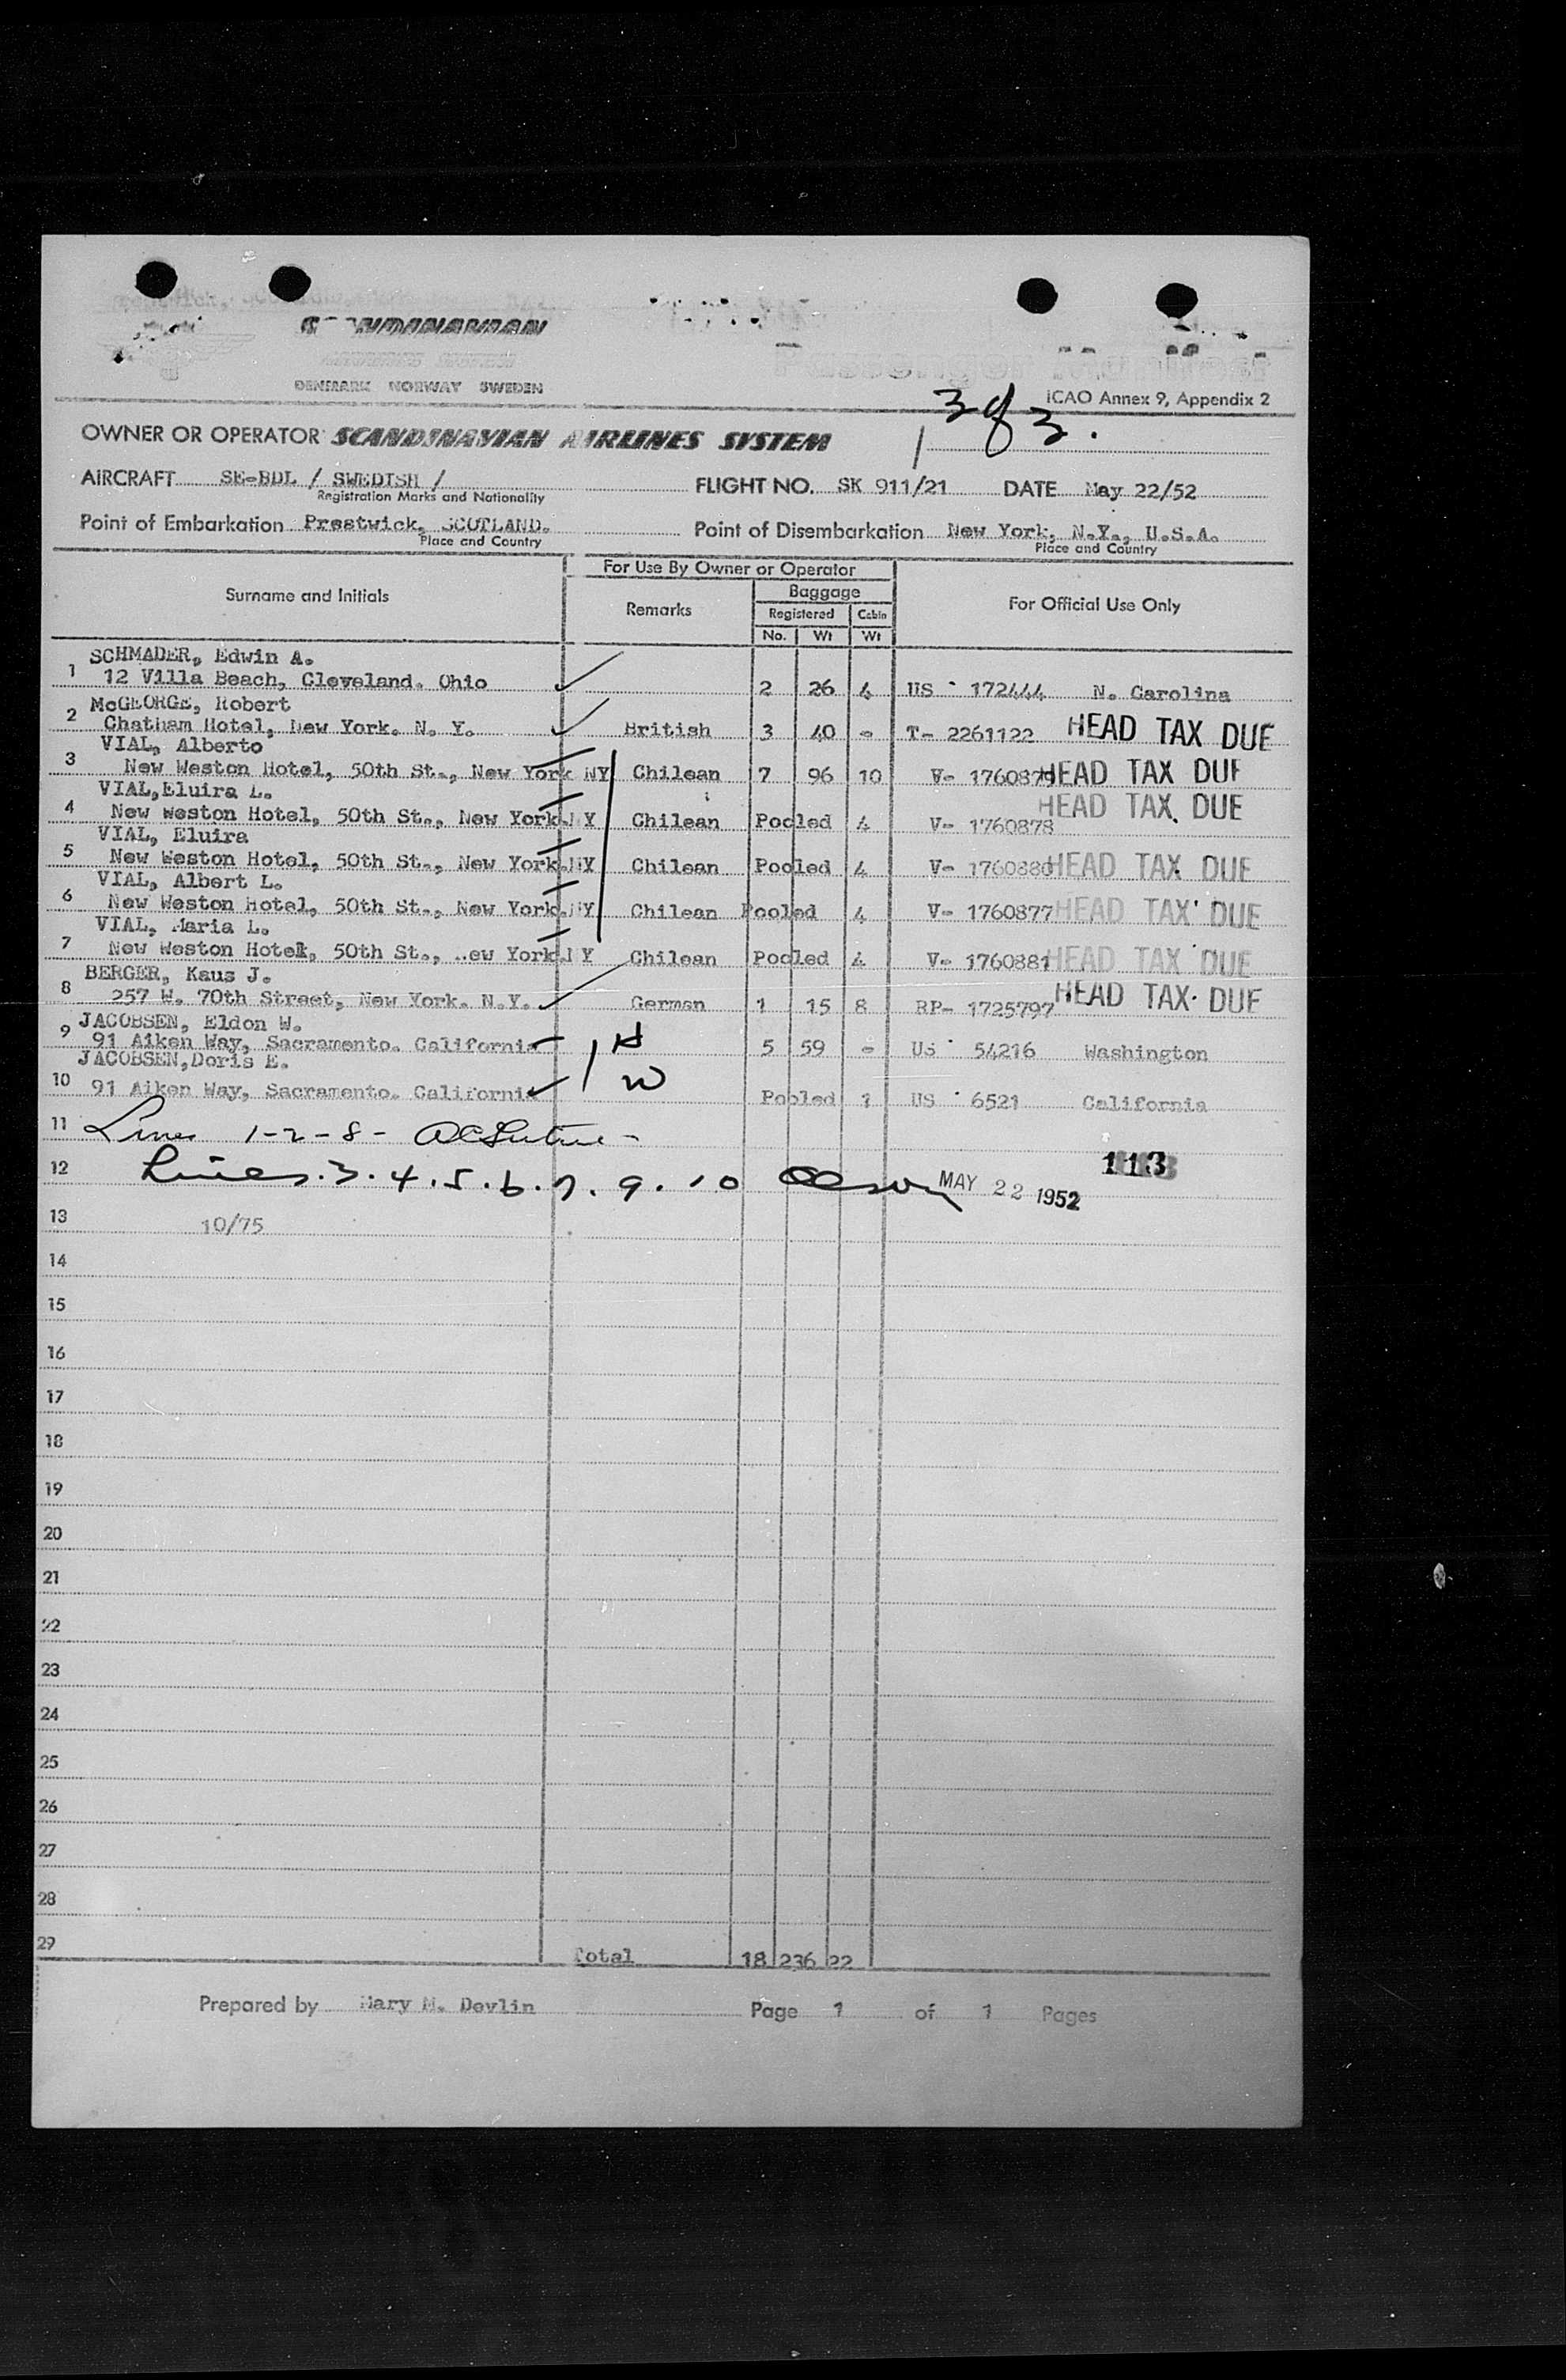 SCANDINAVIAN
DENMARK NORWAY SWEDEN
Passenger Manifest
ICAO Annex 9, Appendix 2
3 of 3.
OWNER OR OPERATOR SCANDINAVIAN AIRLINES SYSTEM
AIRCRAFT SE-BDL / SWEDISH / FLIGHT NO. SK 911/21 DATE May 22/52
Registration Marks and Nationality
Point of Embarkation Prestwick, SCOTLAND. Point of Disembarkation New York, N.Y., U.S.A.
Place and Country Place and Country
For Use By Owner or Operator
Surname and Initials Remarks Baggage For Official Use Only
Registered Cabin
No. Wt Wt
SCHMADER, Edwin A.
1 12 Villa Beach, Cleveland. Ohio 2 26 4 US 172444 N. Carolina
McGEORGE, Robert
2 Chatham Hotel, New York. N. Y. British 3 40 - T- 2261122 HEAD TAX DUE
VIAL, Alberto
3 New Weston Hotel, 50th St., New York NY Chilean 7 96 10 V- 1760879 HEAD TAX DUE
VIAL, Eluira L.
4 New Weston Hotel, 50th St., New York.NY Chilean Pooled 4 V- 1760878 HEAD TAX DUE
VIAL, Eluira
5 New Weston Hotel, 50th St., New York.NY Chilean Pooled 4 V- 1760880 HEAD TAX DUE
VIAL, Albert L.
6 New Weston Hotel, 50th St., New York.NY Chilean Pooled 4 V- 1760877 HEAD TAX DUE
VIAL, Maria L.
7 New Weston Hotel, 50th St., New York.NY Chilean Pooled 4 V- 1760881 HEAD TAX DUE
BERGER, Kaus J.
8 257 W. 70th Street, New York. N.Y. German 1 15 8 RP- 1725797 HEAD TAX DUE
JACOBSEN, Eldon W.
9 91 Aiken Way, Sacramento. California H 5 59 - US 54216 Washington
JACOBSEN,Doris E.
10 91 Aiken Way, Sacramento. California W Pooled 1 US 6521 California
11 Lines 1-2-8-
12 Lines.3.4.5.6.7.9.10 MAY 22 1952 113
13 10/75
14
15
16
17
18
19
20
21
22
23
24
25
26
27
28
29 Total 18 236 22
Prepared by Mary M. Devlin Page 1 of 1 Pages